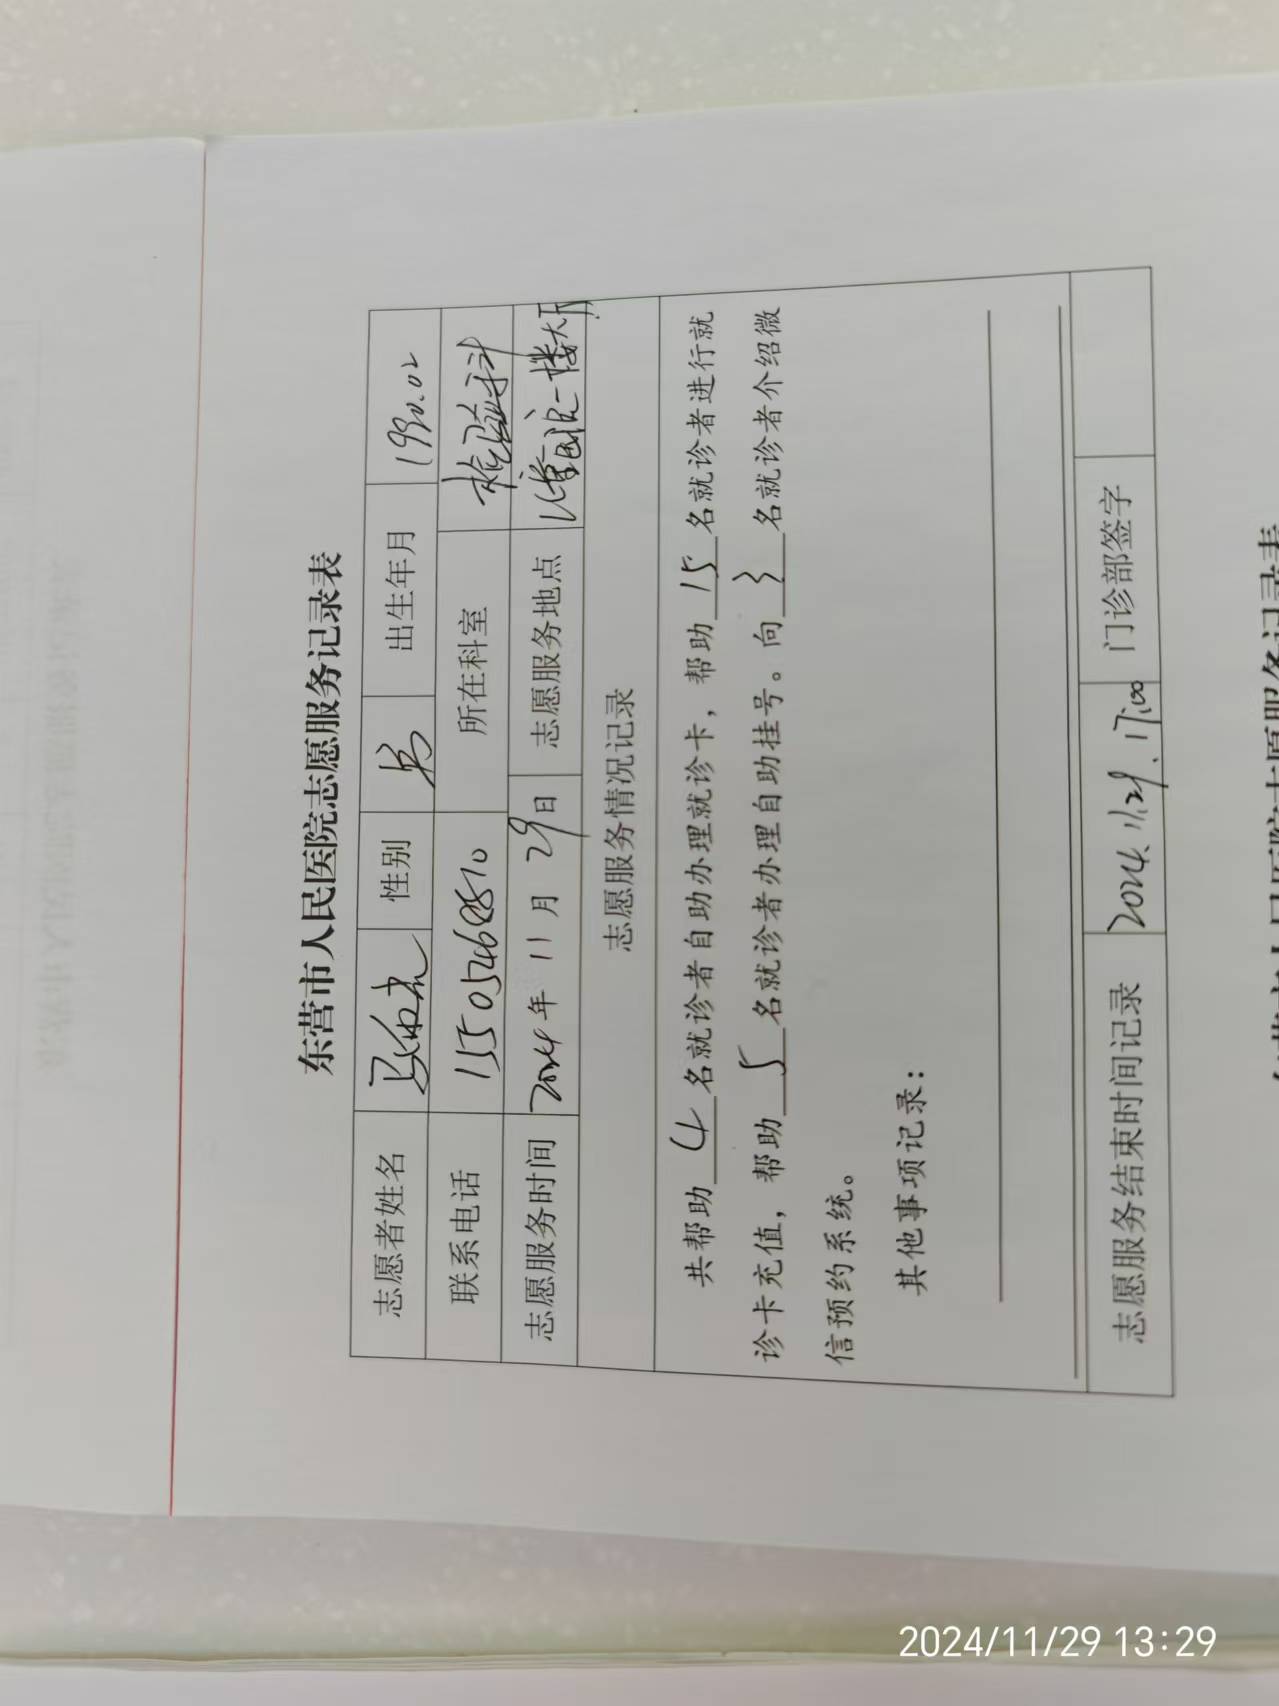 东营市人民医院志愿服务记录表
志愿者姓名 性别 男 出生年月 1990.02
联系电话 所在科室 检验科
志愿服务时间 2024年 11月 29日 志愿服务地点 一楼大厅
志愿服务情况记录
共帮助 4 名就诊者自助办理就诊卡，帮助 15 名就诊者进行就
诊卡充值，帮助 5 名就诊者办理自助挂号。向 3 名就诊者介绍微
信预约系统。
其他事项记录：
志愿服务结束时间记录 2024.11.29. 17:00 门诊部签字
2024/11/29 13:29